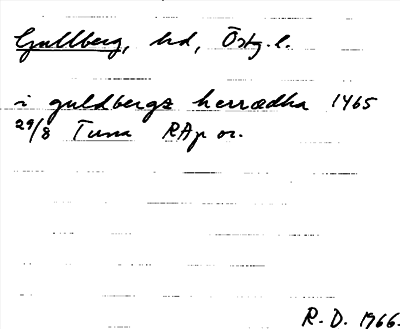 Gullberg, hd, Östg. l.
i guldbergs herrædha 1465
29/8 Tuna RAp or.
R. D. 1966.